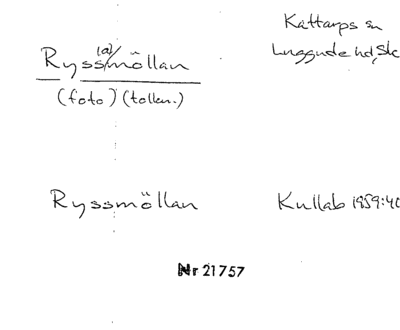 Kattarps sn
Luggude hd, Sk
Ryss(a)möllan
(foto) (tolkn.)
Ryssmöllan
Kullab 1959:40
Nr 21757